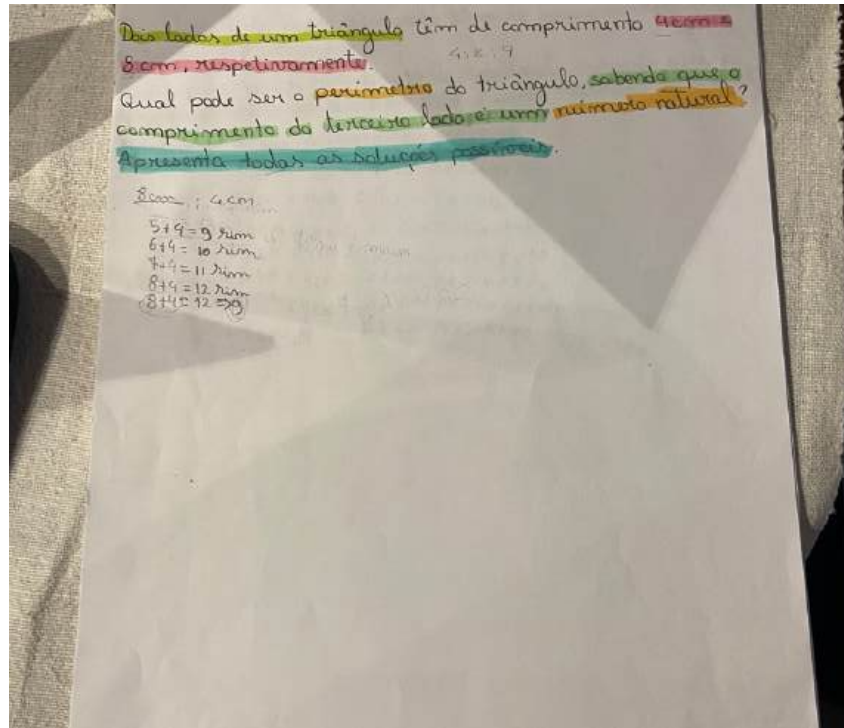 Dois lados de um triângulo têm de comprimento 4cm e
8 cm, respetivamente.
Qual pode ser o perimetro do triângulo, sabendo que o
comprimento do terceiro lado é um número natural?
Apresenta todas as soluções possíveis.
8cm ; 4cm
5+4=9 sim
6+4= 10 sim
7+4=11 sim
8+4=12 sim
8+4=12 =>9